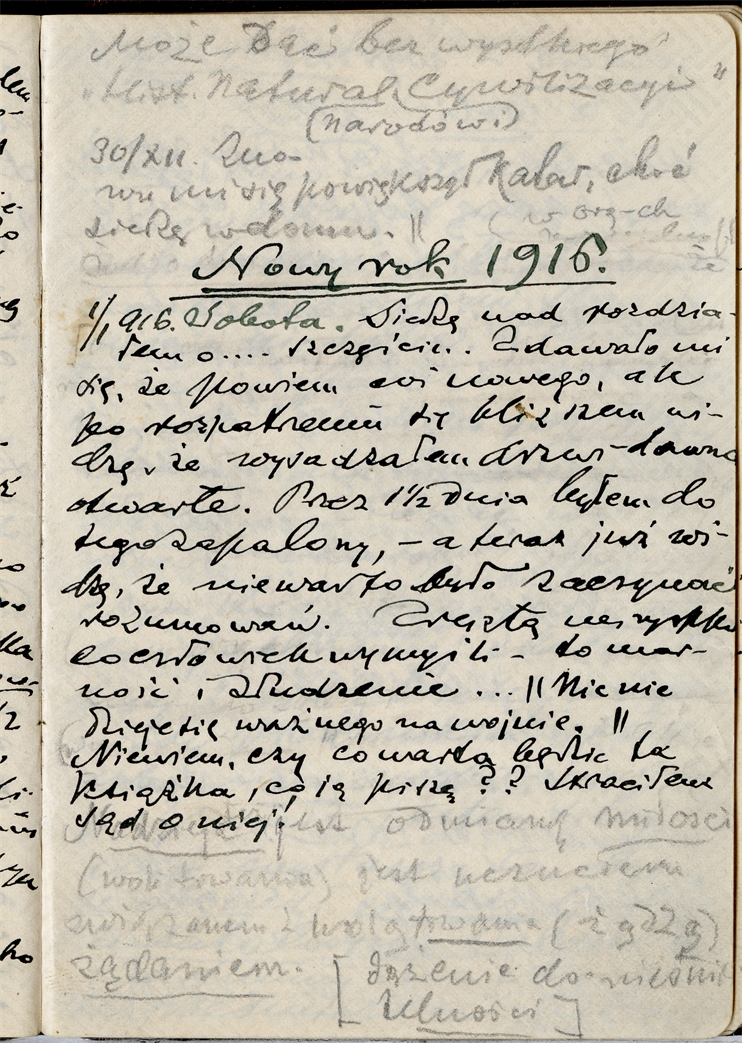 Może Dać bez wszystkiego
"Hist. Natural. Cywilizacyi"
(narodów)
30/XII. Zno-
wu mi się powiększył Katar, choć
siedzę w domu. ||
Nowy rok 1916.
1/I 916. Sobota. Siedzę nad rozdzia-
łem o.... szczęściu. Zdawało mi
się, że powiem coś nowego, ale
po rozpatrzeniu się bliższem wi-
dzę, że wysadzałem drzwi dawno
otwarte. Przez 1½ dnia byłem do
tego zapalony, – a teraz już wi-
dzę, że niewarto było zaczynać
rozumowań. Zresztą wszystko
co człowiek wymyśli – to mar-
ność i złudzenie... || Nic nie
dzieje się ważnego na wojnie. ||
Niewiem, czy co warta będzie ta
książka, co ją piszę?? Straciłem
sąd o niej!
Nadzieja jest odmianą miłości
jest uczuciem
związanem z (żądzą)
żądaniem. [dążenie do
]